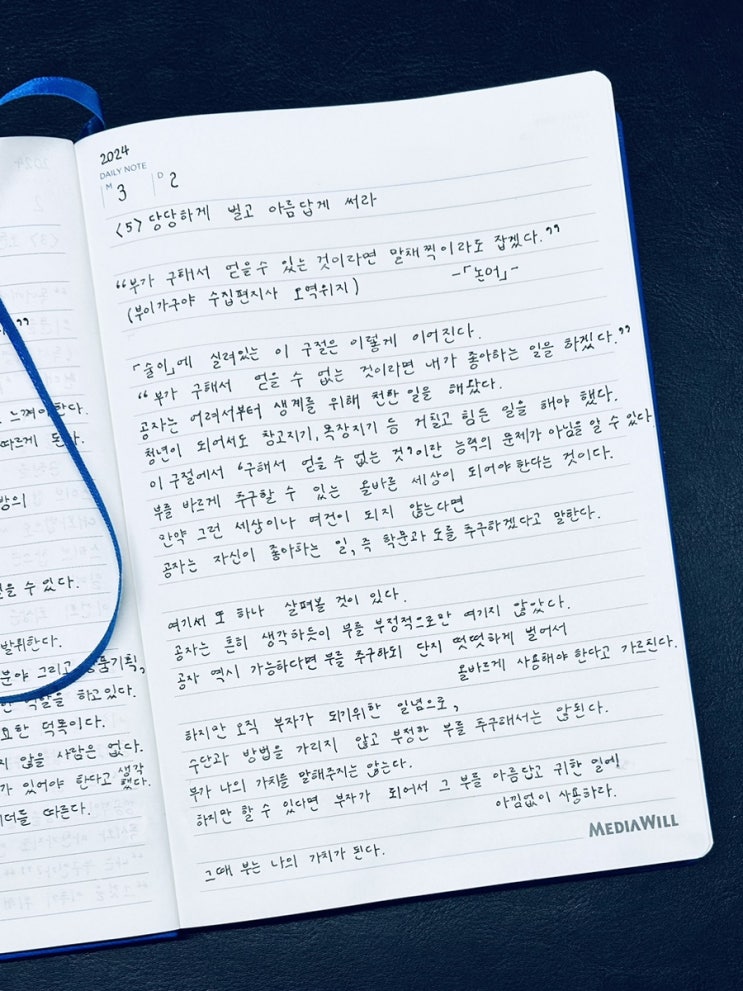 느껴야한다.
따르게 된다.
방의
을 수 있다.
발휘한다.
분야 그리고 상품기획,
역할을 하고있다.
요한 덕목이다.
지 않을 사람은 없다.
가 있어야 한다고 생각
했다.
리더를 따른다.
2024
DAILY NOTE
M 3 D 2
<5> 당당하게 벌고 아름답게 써라
“부가 구해서 얻을수 있는 것이라면 말채찍이라도 잡겠다.”
(부이가구야 수집편지사 오역위지) -「논어」-
「술이」에 실려있는 이 구절은 이렇게 이어진다.
“부가 구해서 얻을 수 없는 것이라면 내가 좋아하는 일을 하겠다.”
공자는 어려서부터 생계를 위해 천한 일을 해왔다.
청년이 되어서도 창고지기, 목장지기 등 거칠고 힘든 일을 해야 했다.
이 구절에서 ‘구해서 얻을 수 없는 것’이란 능력의 문제가 아님을 알 수 있다.
부를 바르게 추구할 수 있는 올바른 세상이 되어야 한다는 것이다.
만약 그런 세상이나 여건이 되지 않는다면
공자는 자신이 좋아하는 일, 즉 학문과 도를 추구하겠다고 말한다.
여기서 또 하나 살펴볼 것이 있다.
공자는 흔히 생각하듯이 부를 부정적으로만 여기지 않았다.
공자 역시 가능하다면 부를 추구하되 단지 떳떳하게 벌어서
올바르게 사용해야 한다고 가르친다.
하지만 오직 부자가 되기위한 일념으로,
수단과 방법을 가리지 않고 부정한 부를 추구해서는 않된다.
부가 나의 가치를 말해주지는 않는다.
하지만 할 수 있다면 부자가 되어서 그 부를 아름답고 귀한 일에
아낌없이 사용하라.
그때 부는 나의 가치가 된다.
MEDIAWILL